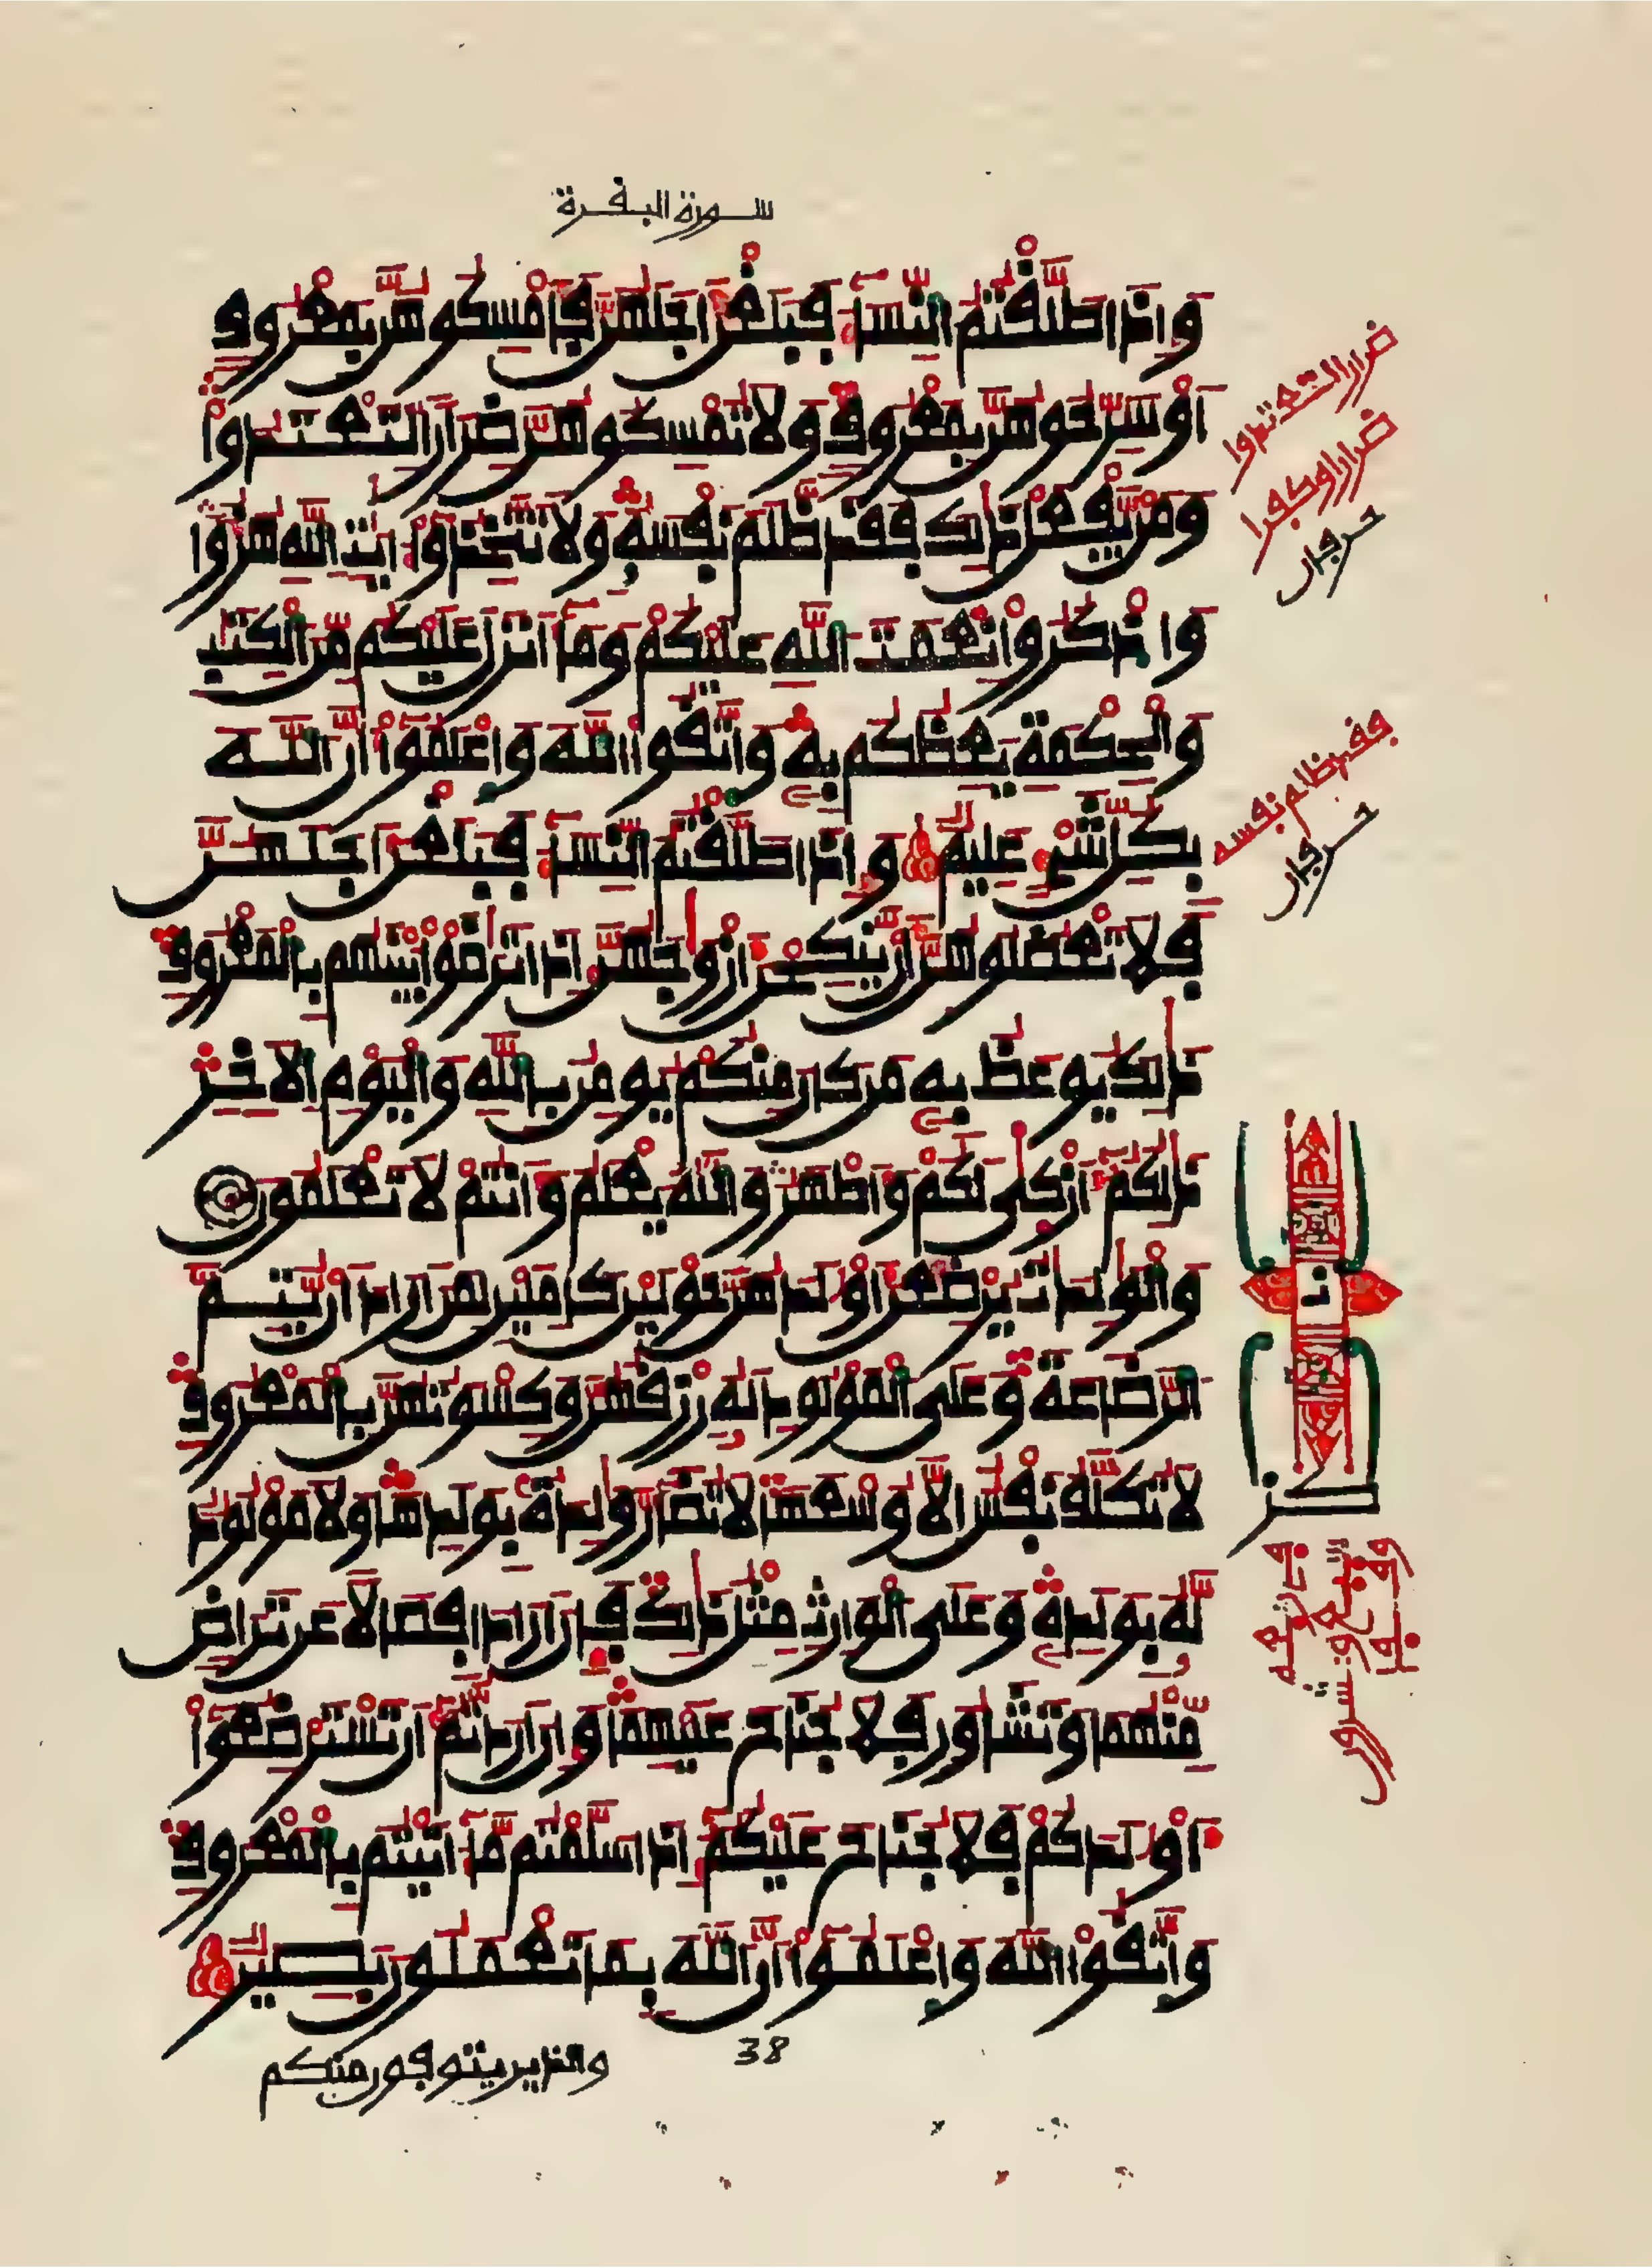 سورة البقرة
وَإِذَا طَلَّقْتُمُ النِّسَآءَ فَبَلَغْنَ أَجَلَهُنَّ فَأَمْسِكُوهُنَّ بِمَعْرُوفٍ
أَوْ سَرِّحُوهُنَّ بِمَعْرُوفٍ وَلَا تُمْسِكُوهُنَّ ضِرَارًا لِّتَعْتَدُوا
وَمَنْ يَّفْعَلْ ذَٰلِكَ فَقَد ظَّلَمَ نَفْسَهُ وَلَا تَتَّخِذُوا ءَايَٰتِ اللَّهِ هُزُؤًا
وَاذْكُرُوا نِعْمَتَ اللَّهِ عَلَيْكُمْ وَمَآ أَنزَلَ عَلَيْكُم مِّنَ الْكِتَٰبِ
وَالْحِكْمَةِ يَعِظُكُم بِهِ وَاتَّقُوا اللَّهَ وَاعْلَمُوا أَنَّ اللَّهَ
بِكُلِّ شَيْءٍ عَلِيمٌ وَإِذَا طَلَّقْتُمُ النِّسَآءَ فَبَلَغْنَ أَجَلَهُنَّ
فَلَا تَعْضُلُوهُنَّ أَنْ يَّنكِحْنَ أَزْوَٰجَهُنَّ إِذَا تَرَٰضَوْا بَيْنَهُم بِالْمَعْرُوفِ
ذَٰلِكَ يُوعَظُ بِهِ مَن كَانَ مِنكُمْ يُومِنُ بِاللَّهِ وَالْيَوْمِ الَاخِرِ
ذَٰلِكُمُ أَزْكَىٰ لَكُمْ وَأَطْهَرُ وَاللَّهُ يَعْلَمُ وَأَنتُمْ لَا تَعْلَمُونَ
وَالْوَٰلِدَٰتُ يُرْضِعْنَ أَوْلَٰدَهُنَّ حَوْلَيْنِ كَامِلَيْنِ لِمَنَ أَرَادَ أَنْ يُّتِمَّ
الرَّضَٰعَةَ وَعَلَى الْمَوْلُودِ لَهُ رِزْقُهُنَّ وَكِسْوَتُهُنَّ بِالْمَعْرُوفِ
لَا تُكَلَّفُ نَفْسٌ إِلَّا وُسْعَهَا لَا تُضَآرَّ وَٰلِدَةٌ بِوَلَدِهَا وَلَا مَوْلُودٌ
لَّهُ بِوَلَدِهِ وَعَلَى الْوَارِثِ مِثْلُ ذَٰلِكَ فَإِنَ أَرَادَا فِصَالًا عَن تَرَاضٍ
مِّنْهُمَا وَتَشَاوُرٍ فَلَا جُنَاحَ عَلَيْهِمَا وَإِنَ أَرَدتُّمُ أَن تَسْتَرْضِعُوا
أَوْلَٰدَكُمْ فَلَا جُنَاحَ عَلَيْكُمُ إِذَا سَلَّمْتُم مَّآ ءَاتَيْتُم بِالْمَعْرُوفِ
وَاتَّقُوا اللَّهَ وَاعْلَمُوا أَنَّ اللَّهَ بِمَا تَعْمَلُونَ بَصِيرٌ
38
والذين يتوفون منكم
ضرارا لتعتدوا
ضرارا وكفرا
حرفان
فقد ظلم نفسه
حرفان